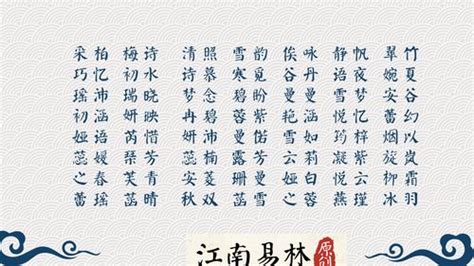 采柏 梅诗 清照 雪韵 俟咏 静帆 翠竹
巧忆 初水 诗慕 寒觅 谷丹 语夜 婉夏
瑶沛 瑞晓 梦念 碧盼 曼曼 雪梦 蕾谷
初涵 妍映 冉碧 蓉紫 艳涵 悦忆 安幻
娅语 芮惜 婧楠 曼偌 妍如 筠梓 烟以
蕊媛 琹芳 蕊楠 露芳 云莉 凝紫 旋岚
之春 芙青 安菱 珊曼 娅白 悦云 柳霜
蕾瑶 蕊晴 秋双 菡雪 之燕 瑾 冰羽
江南易林
原创